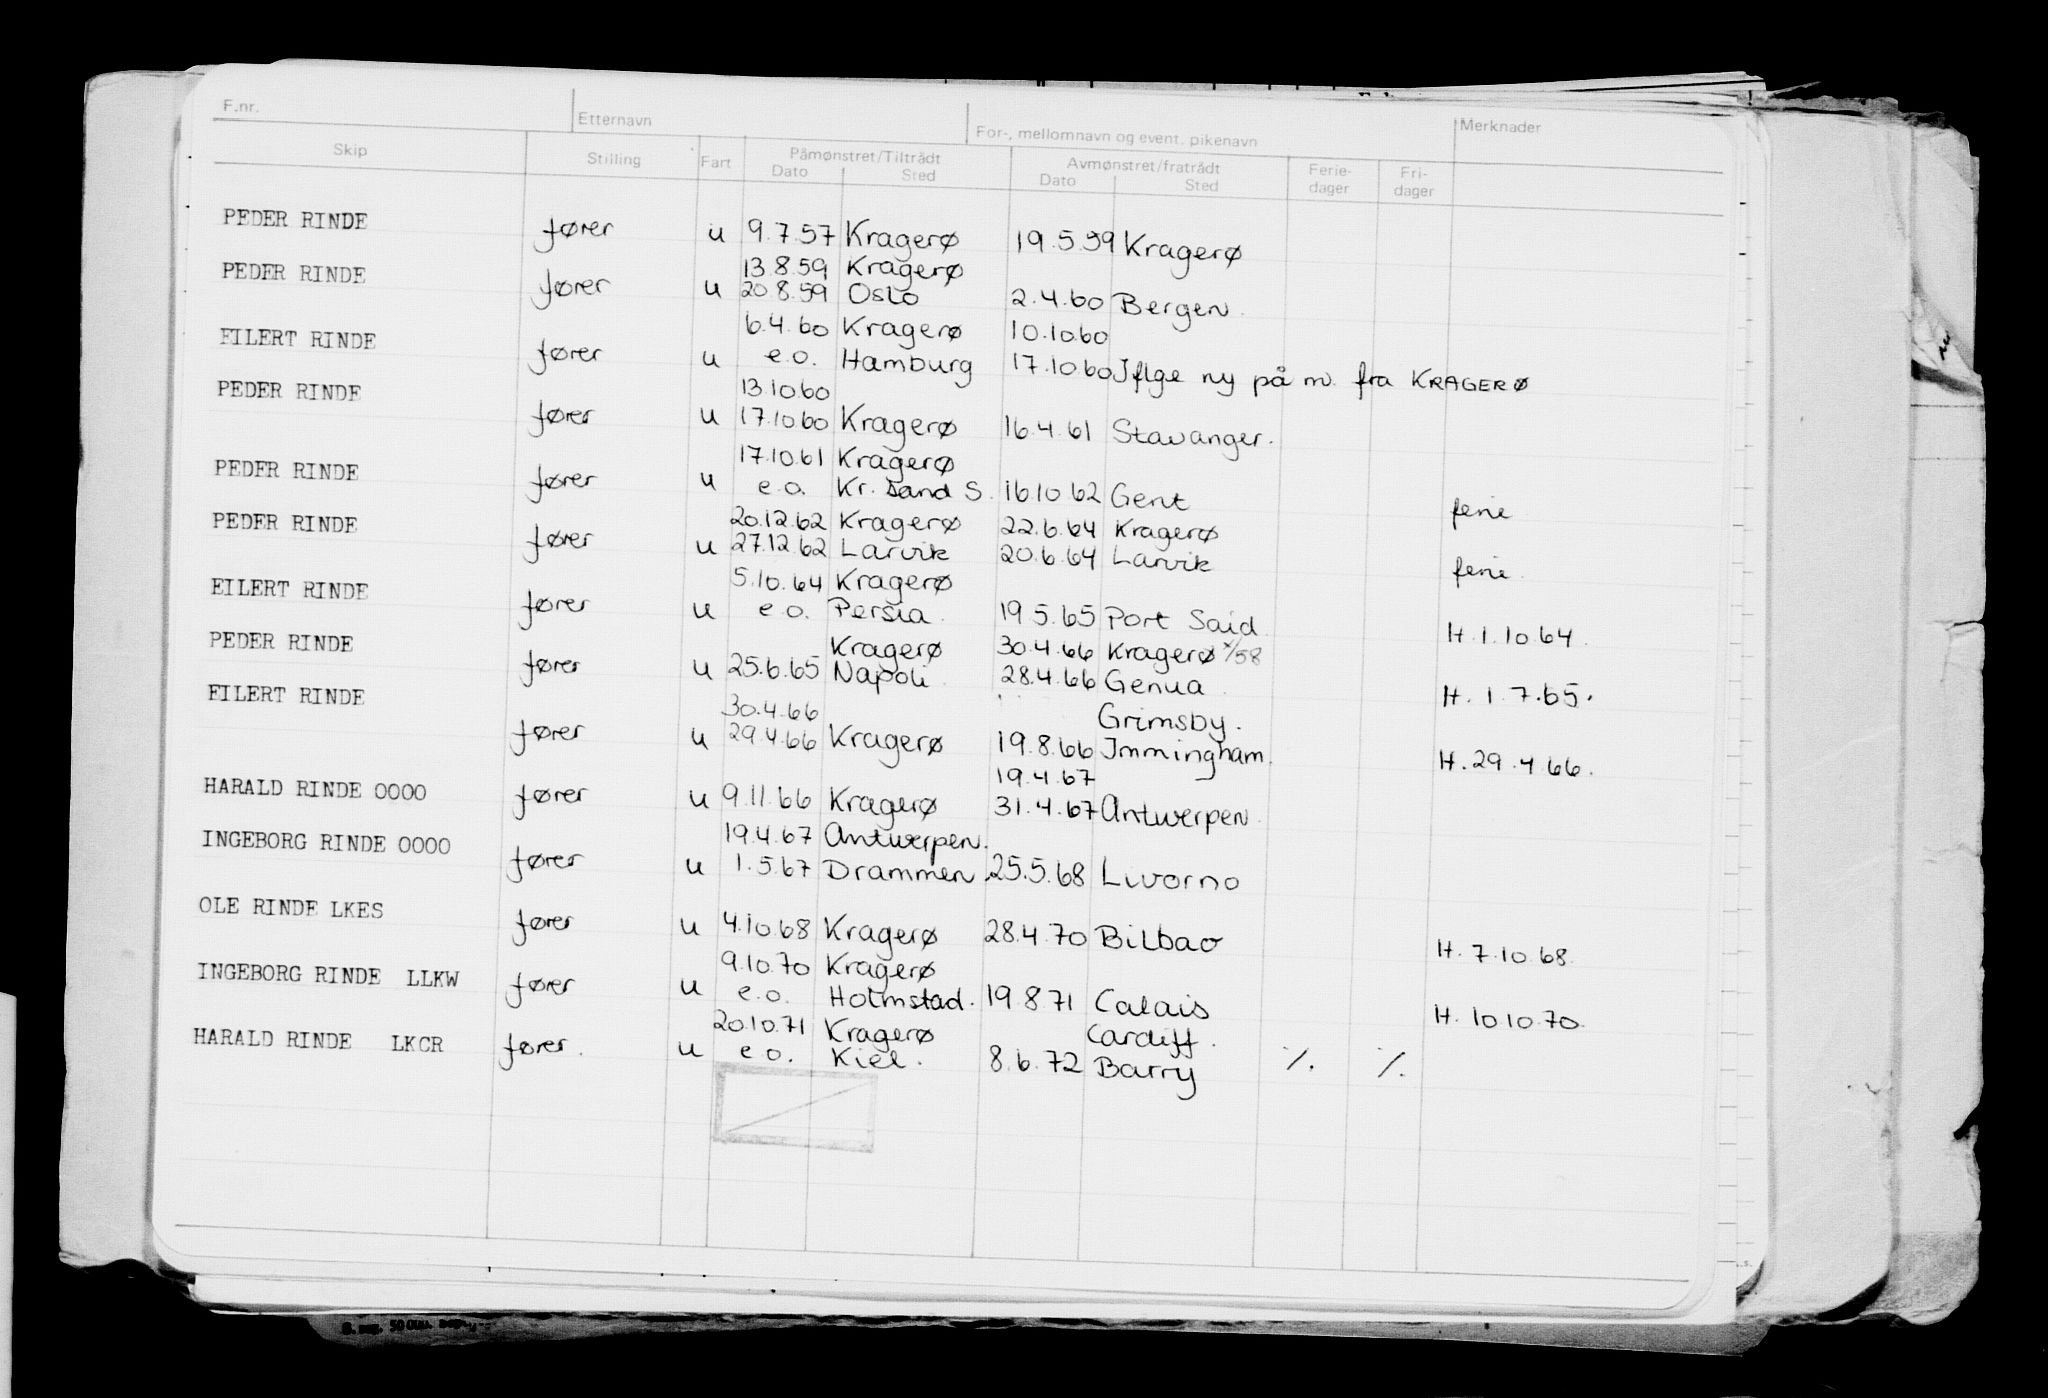 F.nr. Etternavn For-, mellomnavn og event. pikenavn Merknader
Skip Stilling Fart Påmønstret/Tiltrådt Avmønstret/fratrådt Ferie- Fri-
Dato Sted Dato Sted dager dager
PEDER RINDE fører u 9.7.57 Kragerø 19.5.59 Kragerø
13.8.59 Kragerø
PEDER RINDE fører u 20.8.59 Oslo 2.4.60 Bergen
6.4.60 Kragerø 10.10.60
EILERT RINDE fører u e.o. Hamburg 17.10.60 Iflge ny på m. fra KRAGERØ
13.10.60
PEDER RINDE fører u 17.10.60 Kragerø 16.4.61 Stavanger.
17.10.61 Kragerø
PEDER RINDE fører u e.o. Kr. Sand S. 16.10.62 Gent ferie
20.12.62 Kragerø 22.6.64 Kragerø
PEDER RINDE fører u 27.12.62 Larvik 20.6.64 Larvik ferie.
5.10.64 Kragerø
EILERT RINDE fører u e.o. Persia. 19.5.65 Port Said H.1.10.64.
Kragerø 30.4.66 Kragerø /58
PEDER RINDE fører u 25.6.65 Napoli. 28.4.66 Genua. H. 1.7.65.
30.4.66 Grimsby.
EILERT RINDE fører u 29.4.66 Kragerø 19.8.66 Immingham. H.29.4.66.
19.4.67
HARALD RINDE OOOO fører u 9.11.66 Kragerø 31.4.67 Antwerpen.
19.4.67 Antwerpen.
INGEBORG RINDE OOOO fører u 1.5.67 Drammen. 25.5.68 Livorno
OLE RINDE LKES fører u 4.10.68 Kragerø 28.4.70 Bilbao H. 7.10.68.
9.10.70 Kragerø
INGEBORG RINDE LLKW fører u e.o. Holmstad. 19.8.71 Calais H. 10.10.70.
20.10.71 Kragerø Cardiff.
HARALD RINDE LKCR fører. u e.o. Kiel. 8.6.72 Barry ./. ./.